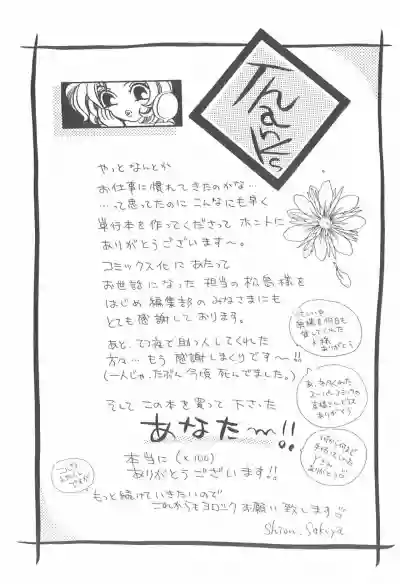 Thanks
やっとなんとか
お仕事に慣れてきたのかな…
…って思ってたのに こんなにも早く
単行本を作ってくださって ホントに
ありがとうございます〜。
コミックス化にあたって
お世話になった 担当の松島様を
はじめ 編集部のみなさまにも
とても感謝しております。
あと、てつ夜で助っ人してくれた
方々… もう 感謝しまくりです〜!!
(一人じゃ、たぶん今頃 死んでました。)
そして この本を買って下さった
あなた〜!!
本当に (×100)
ありがとうございます!!
もっと続けていきたいので
これからもヨロシクお願い致します
Shion. Sakiya
ありがとう
ありがとう